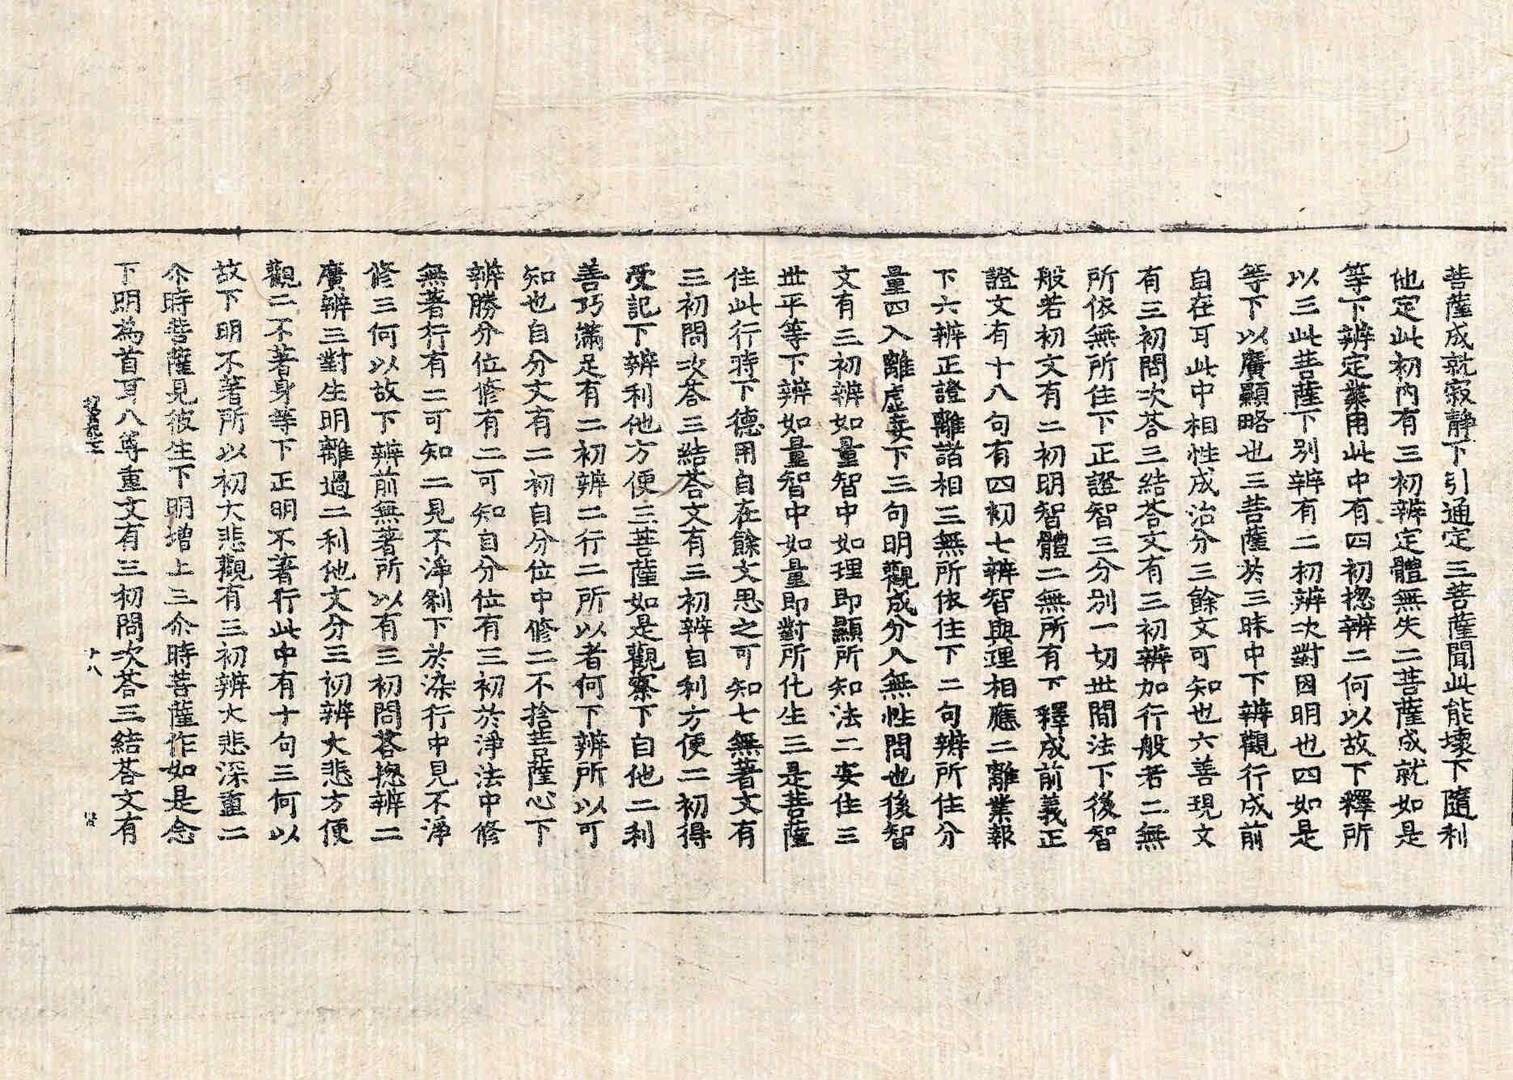 菩薩成就寂静下引通定三菩薩聞此能壞下隨利
他定此初内有三初辨定體無失二菩薩成就如是
等下辨定業用此中有四初揔辨二何以故下釋所
以三此菩薩下別辨有二初辨次對因明也四如是
等下以廣顯略也三菩薩於三昧中下辨觀行成前
自在可此中相性成治分三餘文可知也六善現文
有三初問次荅三結荅文有三初辨加行般若二無
所依無所住下正證智三分别一切世間法下後智
般若初文有二初明智體二無所有下釋成前義正
證文有十八句有四初七辨智與理相應二離業報
下六辨正證離諸相三無所依住下二句辨所住分
量四入離虛妄下三句明觀成分入無性問也後智
文有三初辨如量智中如理即顯所知法二安住三
世平等下辨如量智中如量即對所化生三是菩薩
住此行時下德用自在餘文思之可知七無著文有
三初問次荅三結荅文有三初辨自利方便二初得
受記下辨利他方便三菩薩如是觀察下自他二利
善巧滿足有二初辨二行二所以者何下辨所以可
知也自分文有二初自分位中修二不捨菩薩心下
辨勝分位修有二可知自分位有三初於淨法中修
無著行有二可知二見不淨刹下於染行中見不淨
修三何以故下辨前無著所以有三初問荅揔辨二
廣辨三對生明離過二利他文分三初辨大悲方便
觀二不著身等下正明不著行此中有十句三何以
故下明不著所以初大悲觀有三初辨大悲深重二
尒時菩薩見彼生下明增上三尒時菩薩作如是念
下明爲首耳八尊重文有三初問次荅三結荅文有
十八